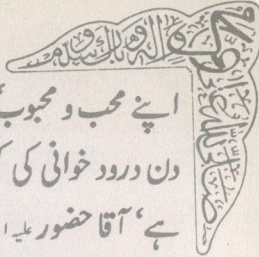 صلی اللہ علیہ وآلہ وبارک وسلم
اپنے محب و محبوب
دن درود خوانی کی
ہے‘ آقا حضور علیہ ا